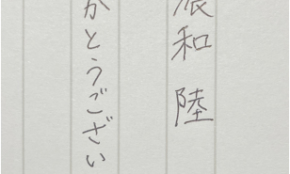 和陸
かとうござい